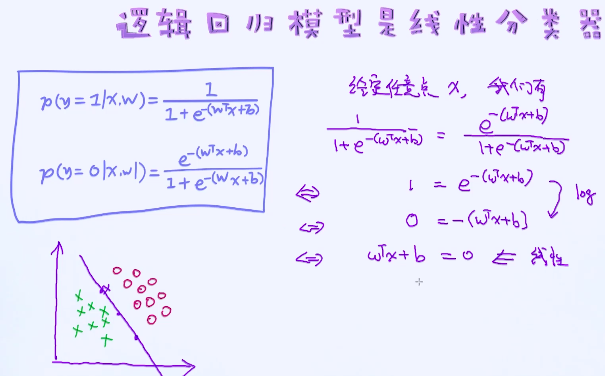 逻辑回归模型是线性分类器
p(y=1|x,w)= 1 / 1+e^-(wᵀx+b)
p(y=0|x,w|)= e^-(wᵀx+b) / 1+e^-(wᵀx+b)
给定任意点 x, 我们有
1 / 1+e^-(wᵀx+b) = e^-(wᵀx+b) / 1+e^-(wᵀx+b)
⇔ 1 = e^-(wᵀx+b) log
⇔ 0 = -(wᵀx+b]
⇔ wᵀx+b = 0 ⇐ 线性
x